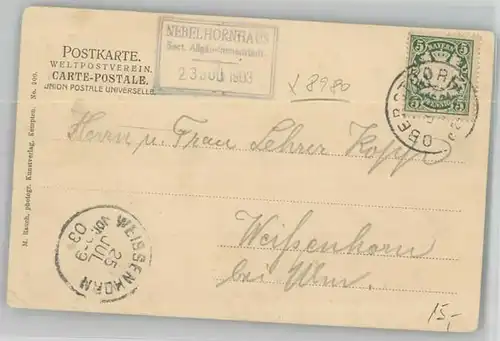 POSTKARTE.
WELTPOSTVEREIN.
CARTE-POSTALE.
UNION POSTALE UNIVERSELLE.
NEBELHORNHAUS
Sect. Allgäu-Immenstadt
23 JUL 1903
L 8980
BAYERN
5 5
PFENNIG
OBERST
Herrn u. Frau Lehrer Kopp
Weißenhorn
bei Ulm.
WEISSENHORN
25
JUL
VOR. 8-9
03
M. Rauch, photogr. Kunstverlag, Kempten. No. 200.
15,-